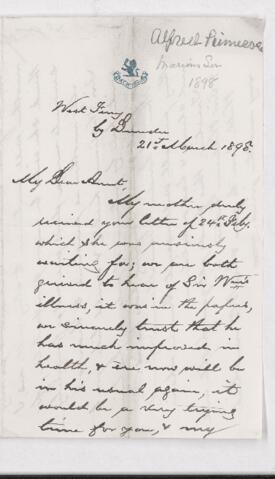 Alfred Primrose
Marion's Son
1898
West Ferry
by Dundee
21st March 1898.
My Dear Aunt,
My mother duly
received your letter of 24th Feby.
which she was anxiously
waiting for; we are both
grieved to hear of Sir Wm's
illness, it was in the papers,
we sincerely trust that he
has much improved in
health, & ere now will be
in his usual again, it
would be a very trying
time for you, & my